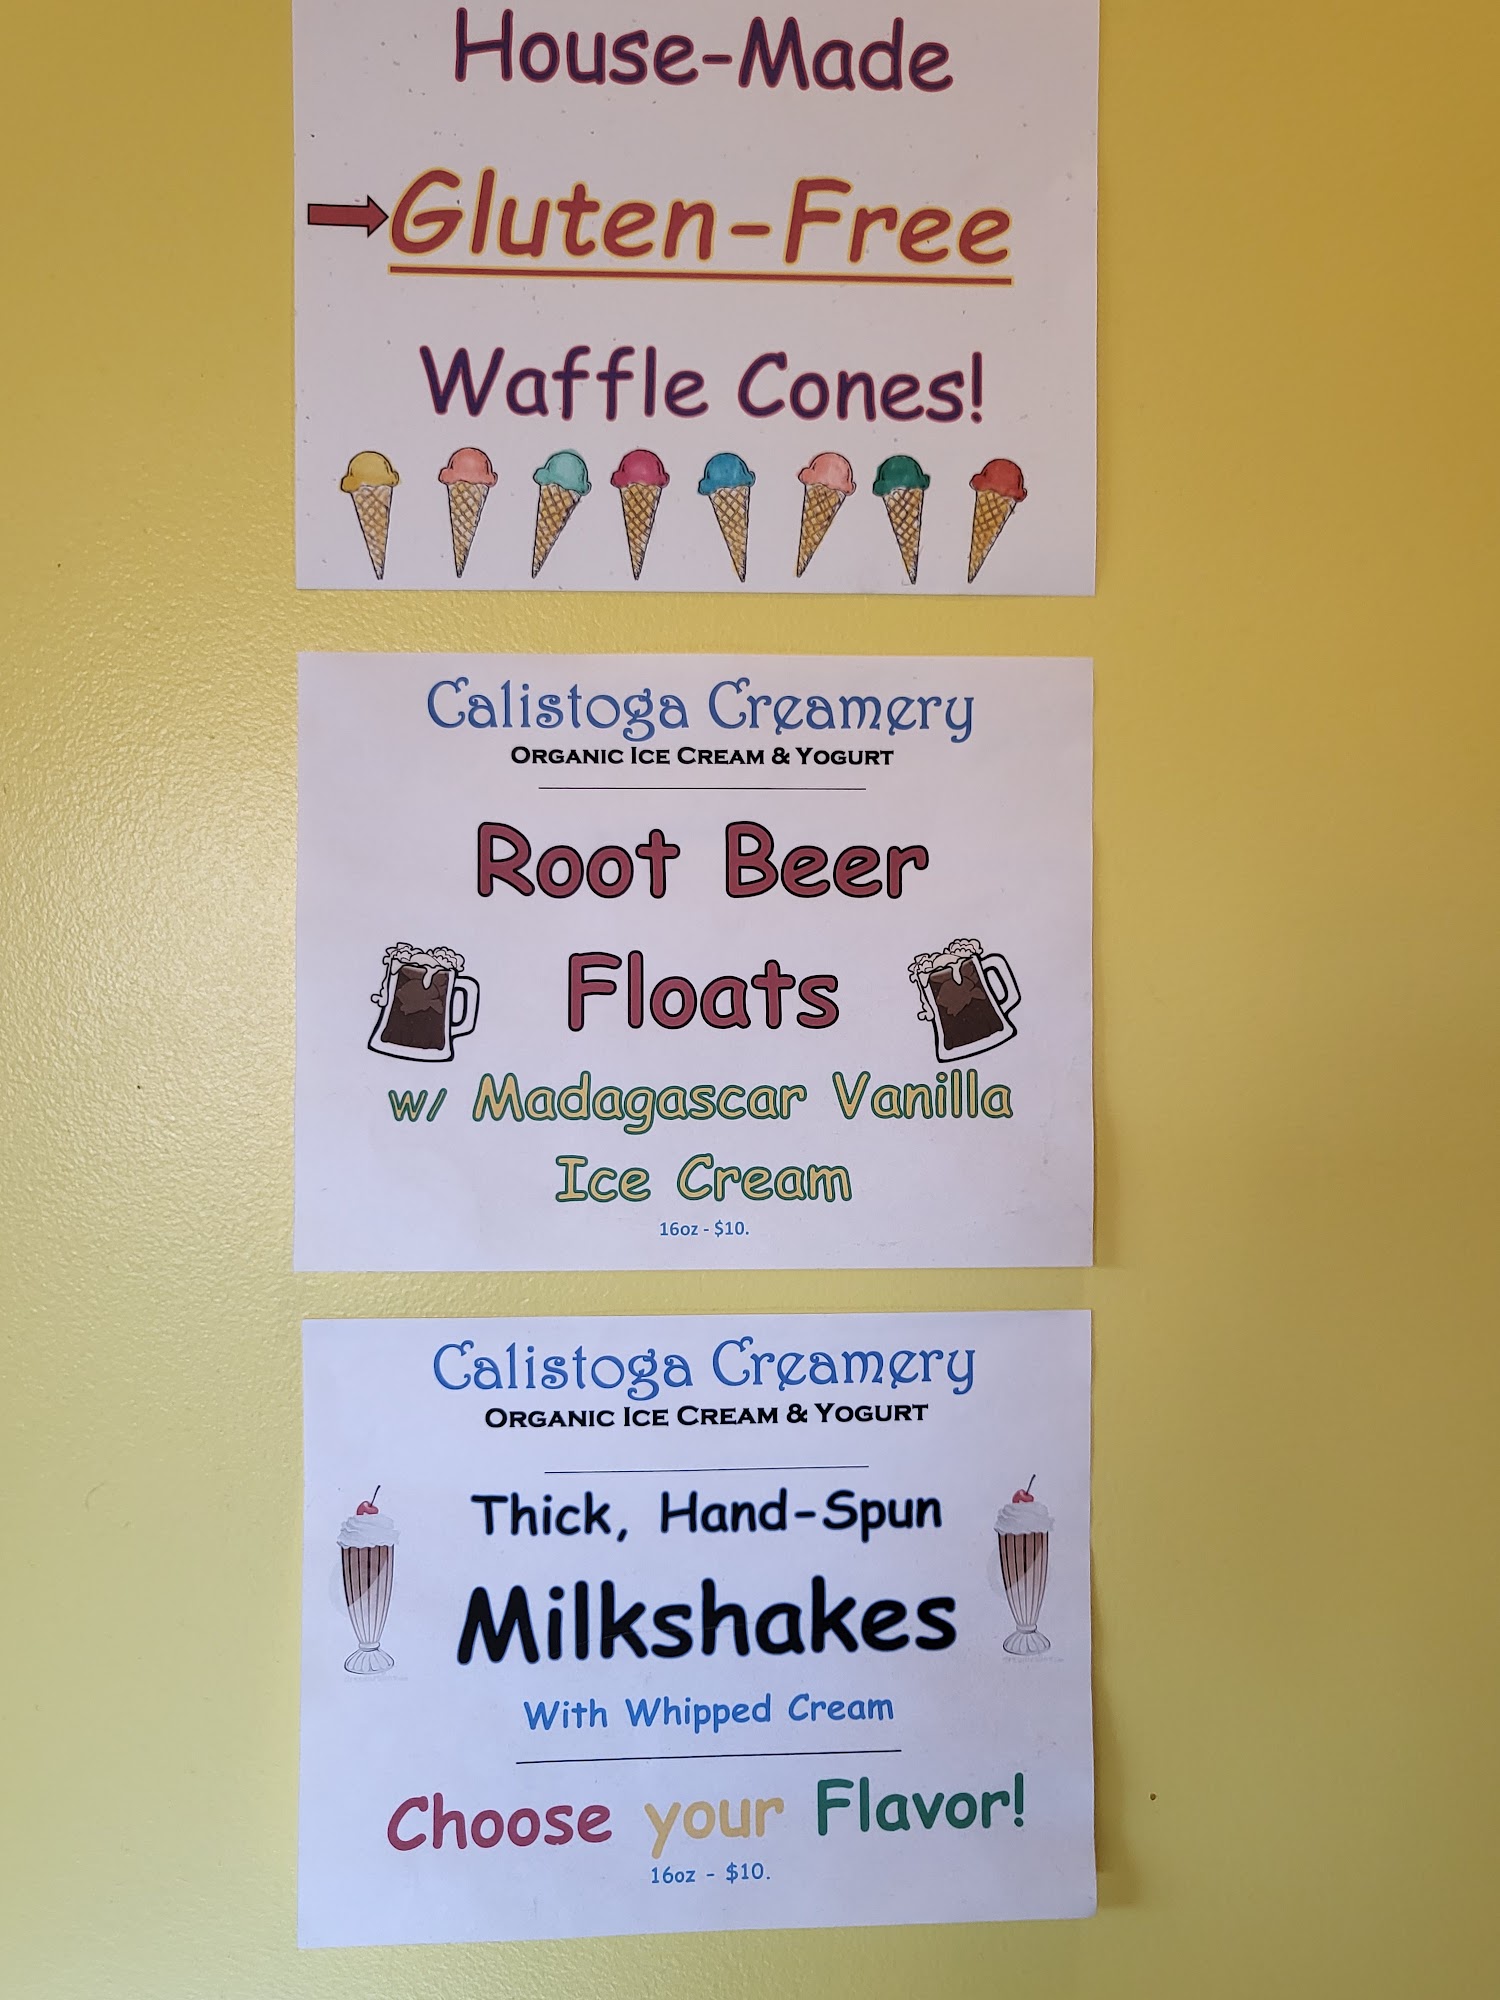 House-Made
Gluten-Free
Waffle Cones!
Calistoga Creamery
Organic Ice Cream & Yogurt
Root Beer
Floats
w/ Madagascar Vanilla
Ice Cream
16oz - $10.
Calistoga Creamery
Organic Ice Cream & Yogurt
Thick, Hand-Spun
Milkshakes
With Whipped Cream
Choose your Flavor!
16oz - $10.